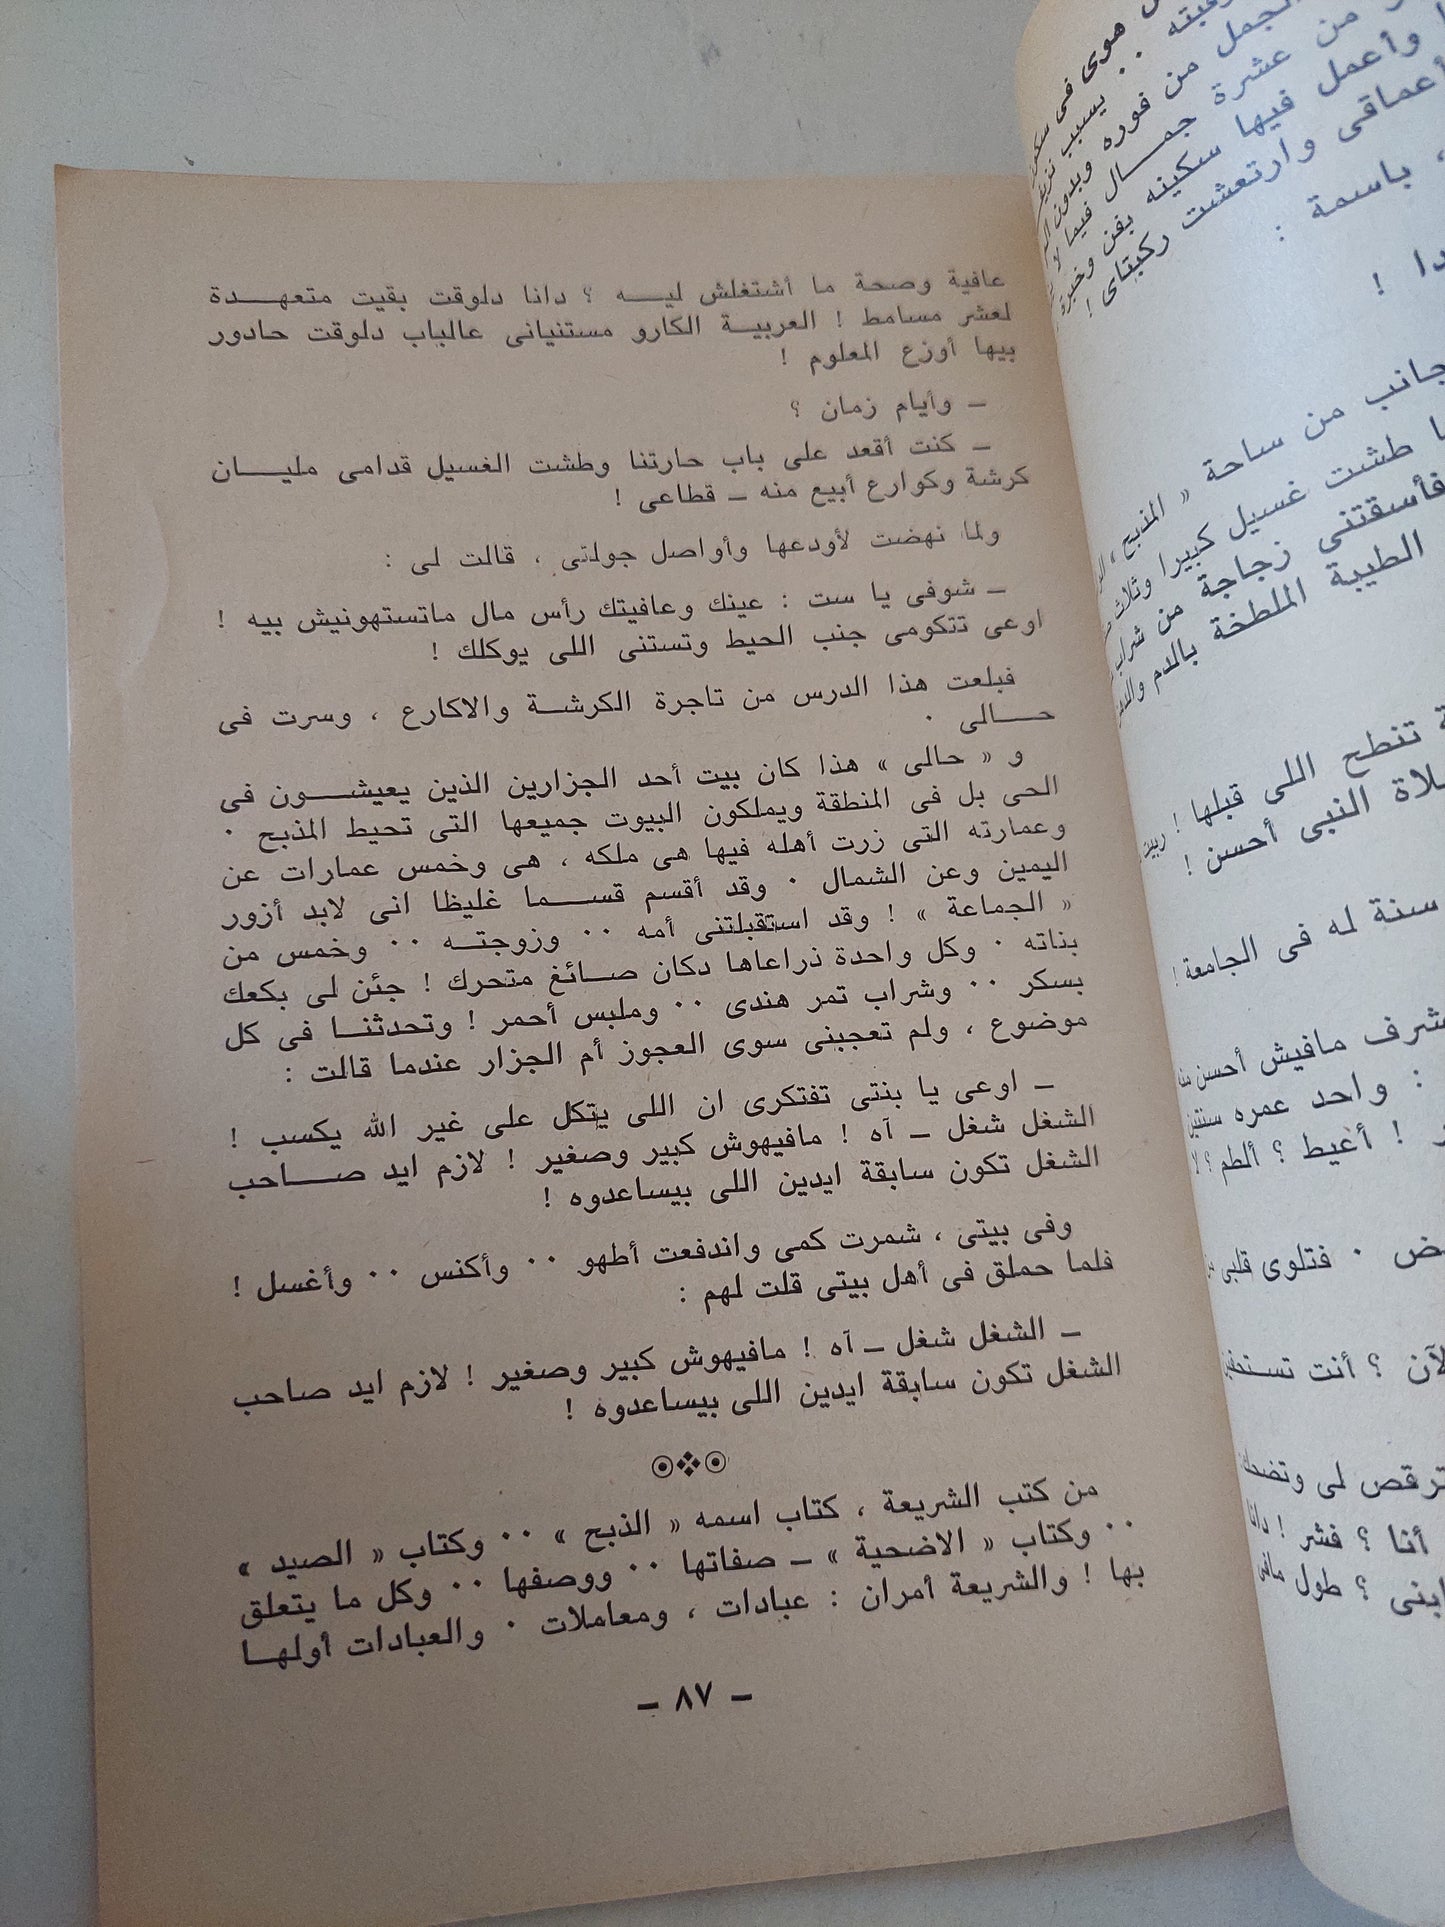 عافية وصحة ما أشتغلش ليـــه ؟ دانا دلوقت بقيت متعهـــدة
لعشر مسامط ! العربيــة الكارو مستنيانى عالباب دلوقت حادور
بيها أوزع المعلوم !
ــ وأيام زمان ؟
ــ كنت أقعد على باب حارتنا وطشت الغسيل قدامى مليـــان
كرشة وكوارع أبيع منه ــ قطاعى !
ولما نهضت لأودعها وأواصل جولتى ، قالت لى :
ــ شوفى يا ست : عينك وعافيتك رأس مال ماتستهونيش بيه !
اوعى تتكومى جنب الحيط وتستنى اللى يوكلك !
فبلعت هذا الدرس من تاجرة الكرشــة والاكارع ، وسرت فى
حــــالى ٠
و « حالى » هذا كان بيت أحد الجزارين الذين يعيشـــون فى
الحى بل فى المنطقة ويملكون البيوت جميعها التى تحيط المذبح ٠
وعمارته التى زرت أهله فيها هى ملكه ، هى وخمس عمارات عن
اليمين وعن الشمال ٠ وقد أقسم قســـما غليظا انى لابد أزور
« الجماعة » ! وقد استقبلتنى أمه ٠٠ وزوجتــه ٠٠ وخمس من
بناته ٠ وكل واحدة ذراعاها دكان صــائغ متحرك ! جئن لى بكعك
بسكر ٠٠ وشراب تمر هندى ٠٠ وملبس أحمر ! وتحدثنــا فى كل
موضوع ، ولم تعجبنى سوى العجوز أم الجزار عندما قالت :
ــ اوعى يا بنتى تفتكرى ان اللى يتكل على غير الله يكسب !
الشغل شغل ــ آه ! مافيهوش كبير وصغير ! لازم ايد صـــاحب
الشغل تكون سابقة ايدين اللى بيساعدوه !
وفى بيتى ، شمرت كمى واندفعت أطهو ٠٠ وأكنس ٠٠ وأغسل !
فلما حملق فى أهل بيتى قلت لهم :
ــ الشغل شغل ــ آه ! مافيهوش كبير وصغير ! لازم ايد صاحب
الشغل تكون سابقة ايدين اللى بيساعدوه !
من كتب الشريعة ، كتاب اسمه « الذبح » ٠٠ وكتاب « الصيد »
٠٠ وكتاب « الاضحية » ــ صفاتها ٠٠ ووصفها ٠٠ وكل ما يتعلق
بها ! والشريعة أمران : عبادات ، ومعاملات ٠ والعبادات أولهــا
ــ ٨٧ ــ
هوى فى
٠٠ يسبب
الجمل من فوره وبدون
من عشرة جمـــال فيما لا
وأعمل فيها سكينه بفن وخبرة
أعماقى وارتعشت ركبتاى !
، باسمة :
جانب من ساحة « المذبح »
طشت غسيل كبيرا وثلاث
فأسقتنى زجاجة من شراب
الطيبة الملطخة بالدم
تنطح اللى قبلها !
النبى أحسن !
سنة له فى الجامعة !
مافيش أحسن منه
: واحد عمره سنتين
! أغيط ؟ ألطم ؟ لا
٠ فتلوى قلبى
؟ أنت
ترقص لى
أنا ؟ فشر ! دانا
ابنى ؟ طول